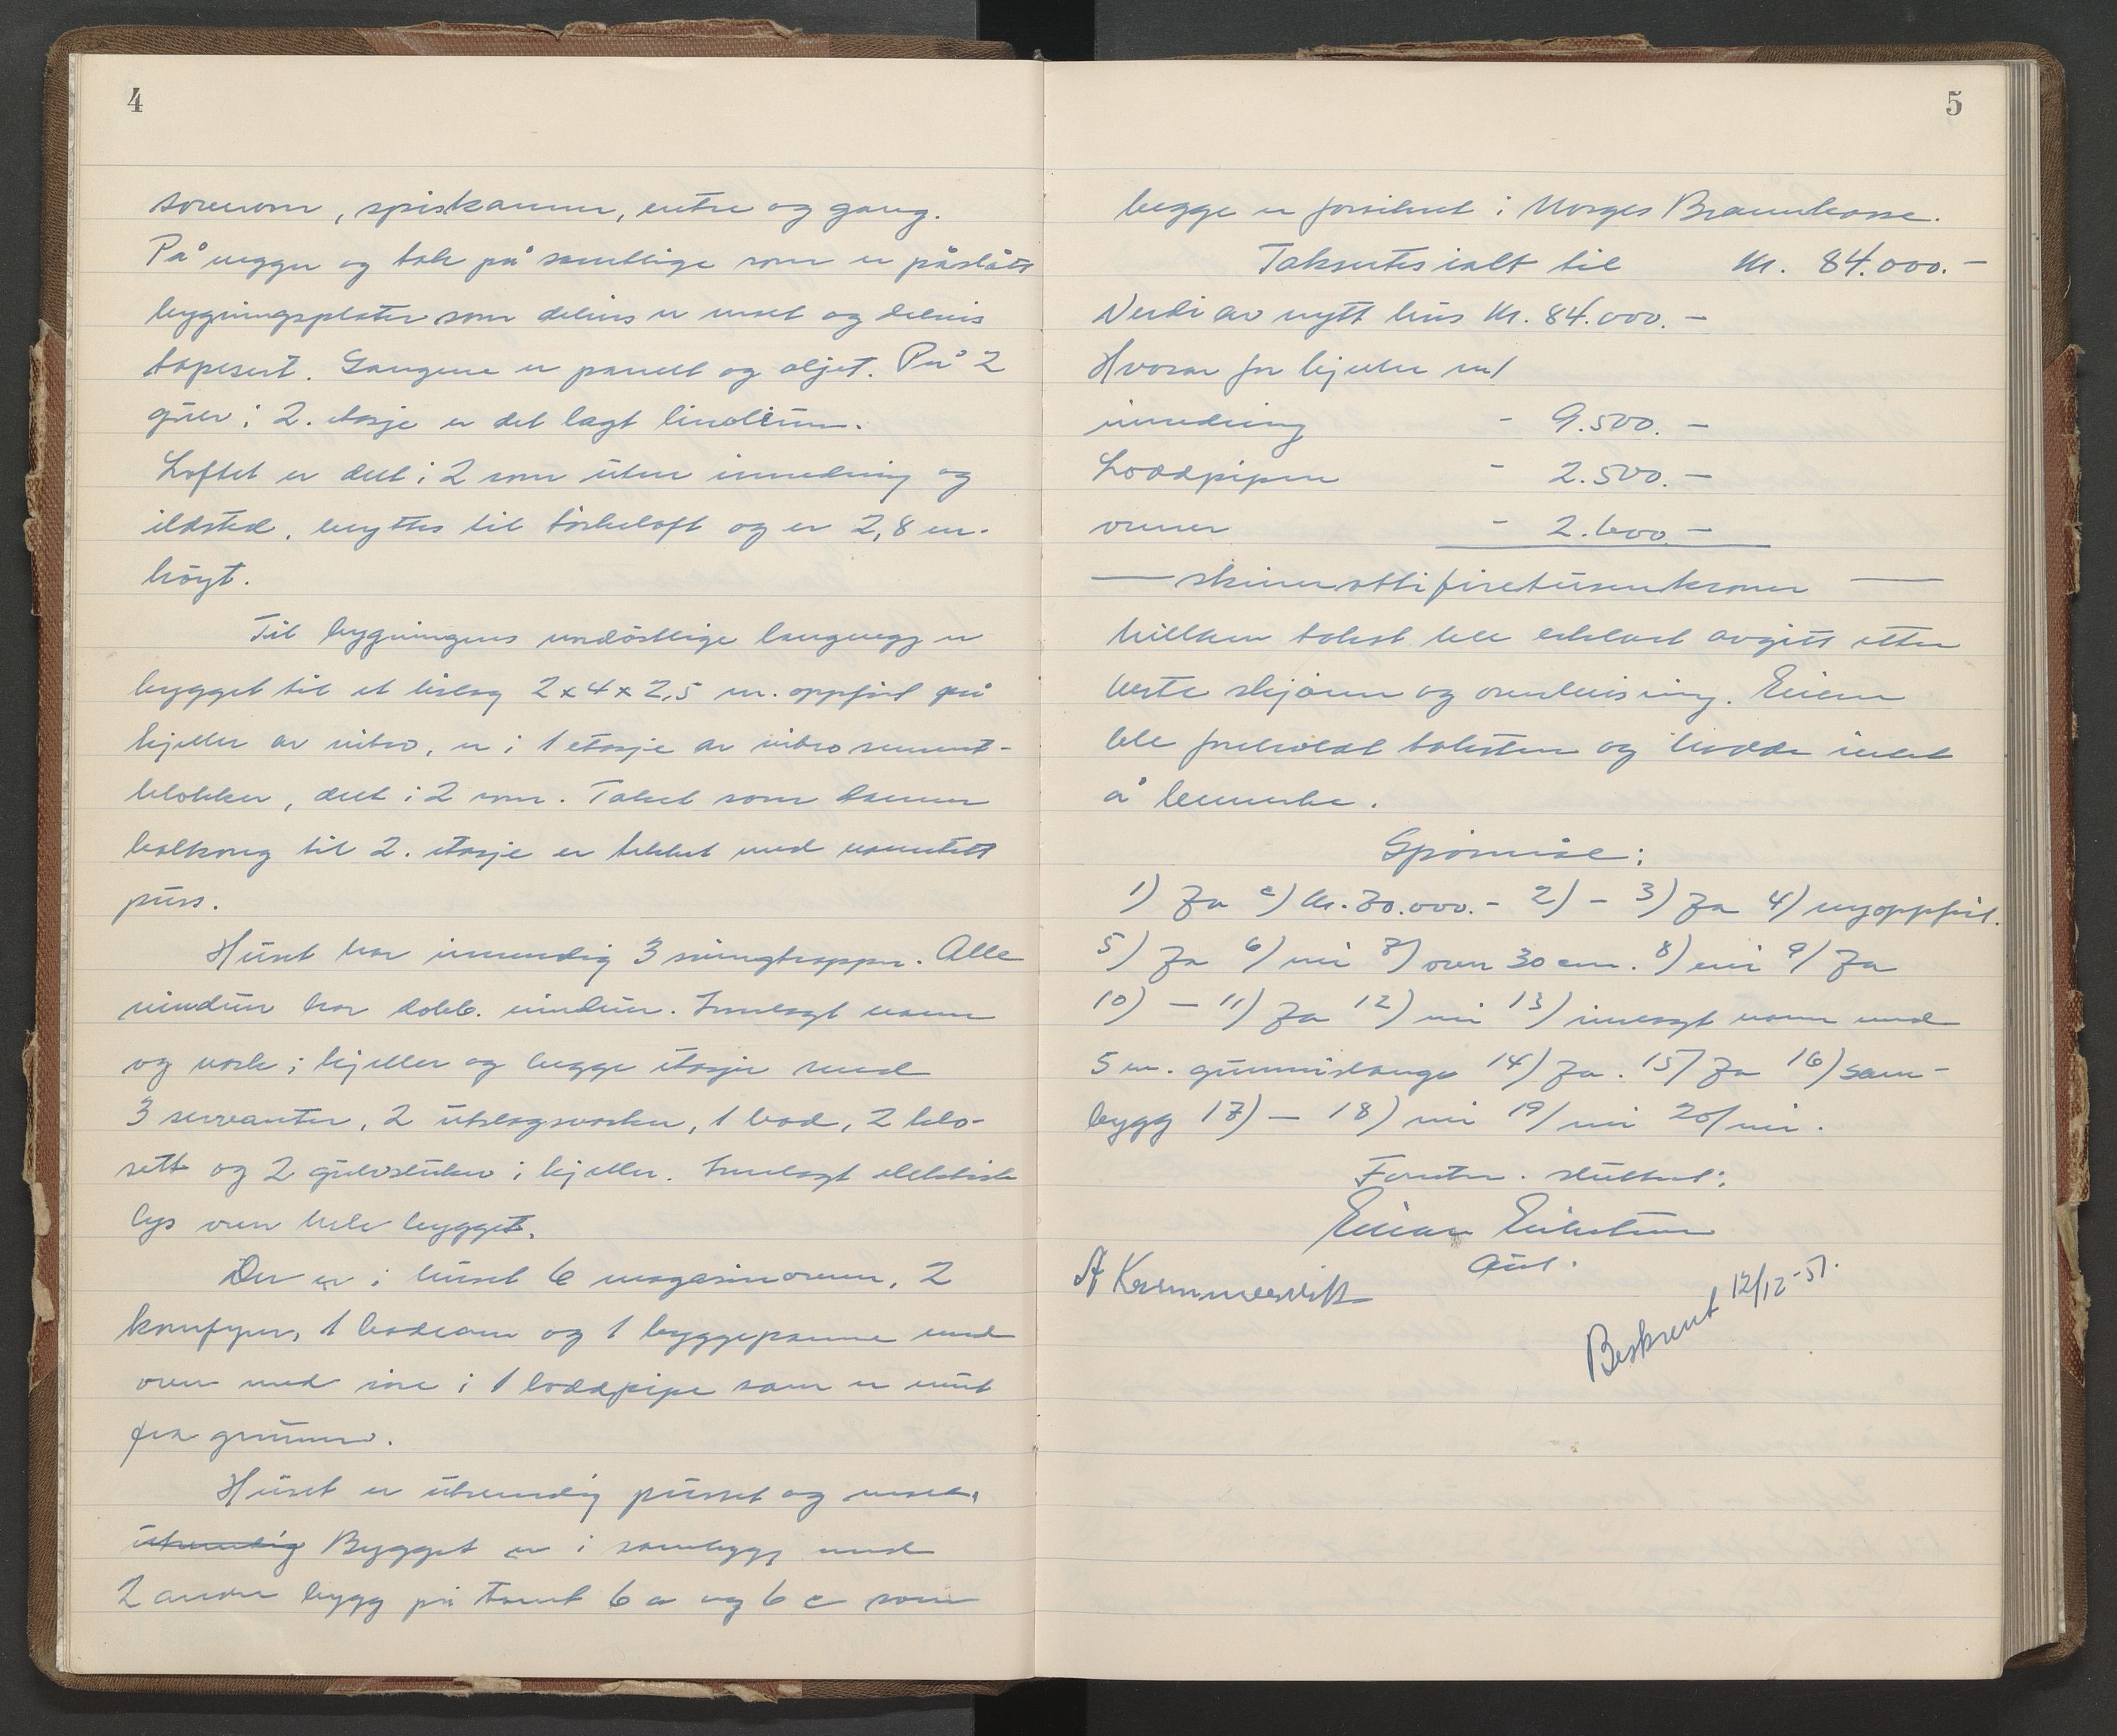 4
soverom, spiskammer, entre og gang.
På vegger og tak på samtlige rom er påslått
bygningsplater som delvis er malt og delvis
tapesert. Gangene er panelt og oljet. På 2
gulv i 2. etasje er det lagt linolium.
Loftet er delt i 2 rom uten innredning og
ildsted, benyttes til törkeloft og er 2,8 m.
höyt.
Til bygningens nordöstlige langvegg er
bygget til et bislag 2x4x2,5 m. oppfört på
kjeller av vibro, er i 1 etasje av vibro sement-
blokker, delt i 2 rom. Taket som danner
balkong til 2. etasje er tekket med vanntett
puss.
Huset har innvendig 3 svingtrapper. Alle
vinduer har dobb. vinduer. Innlagt vann
og vask i kjeller og begge etasjer med
3 servanter, 2 utslagsvasker, 1 bad, 2 klo-
sett og 2 gulvsluker i kjeller. Innlagt elektrisk
lys over hele bygget.
Der er i huset 6 magasinovner, 2
komfyrer, 1 badeovn og 1 bryggepanne med
ovn med rör i 1 loddpipe som er murt
fra grunnen.
Huset er utvendig pusset og malt,
utvendig Bygget er i sambygg med
2 andre bygg på tomt 6 a og 6 c som
5
begge er forsikret i Norges Brannkasse.
Taksertes ialt til Kr. 84.000.-
Verdi av nytt hus Kr. 84.000.-
Hvorav for kjeller m/
innredning - 9.500.-
Loddpipen - 2.500.-
ovner - 2.600.-
— skriver åttifiretusenkroner —
hvilken takst ble erklært avgitt etter
beste skjönn og overbevisning. Eieren
ble foreholdt taksten og hadde intet
å bemerke.
Spörsmål:
1) Ja c) Kr. 70.000.- 2) - 3) Ja 4) nyoppfört.
5) Ja 6) nei 7) over 30 cm. 8) nei 9) Ja
10) - 11) Ja 12) nei 13) innlagt vann med
5 m. gummislange 14) Ja. 15) Ja 16) sam-
bygg 17) - 18) nei 19) nei 20) nei.
Forretn. sluttet:
Einar
A
Beskrevet 12/12-51.